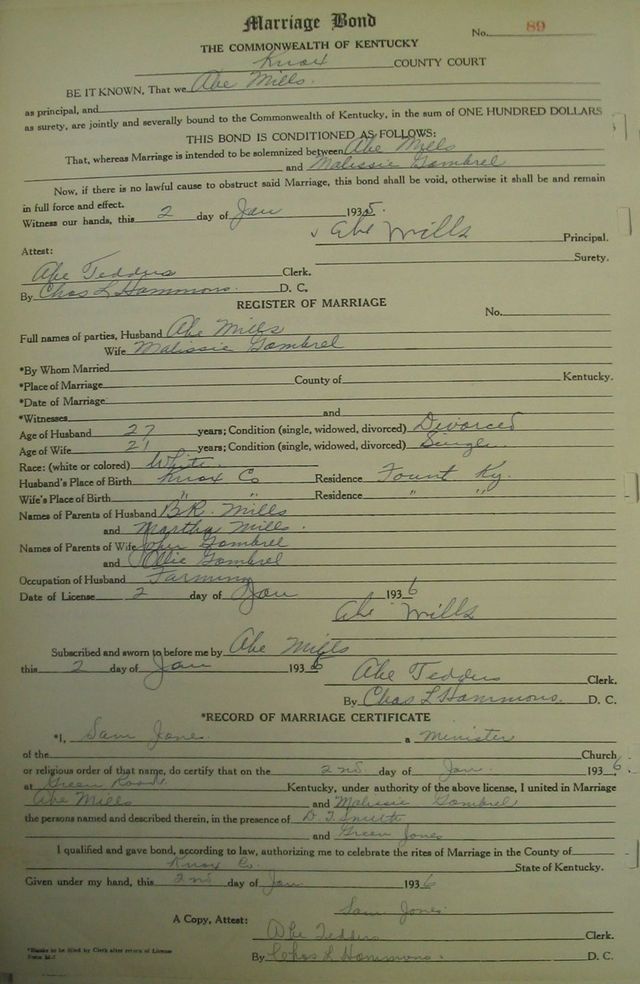 Marriage Bond
No. 89
THE COMMONWEALTH OF KENTUCKY
Knox COUNTY COURT
BE IT KNOWN, That we Abe Mills.
as principal, and
as surety, are jointly and severally bound to the Commonwealth of Kentucky, in the sum of ONE HUNDRED DOLLARS
THIS BOND IS CONDITIONED AS FOLLOWS:
That, whereas Marriage is intended to be solemnized between Abe Mills
and Malissie Gambrel
Now, if there is no lawful cause to obstruct said Marriage, this bond shall be void, otherwise it shall be and remain
in full force and effect.
Witness our hands, this 2 day of Jan 1935.
Abe Mills Principal.
Surety.
Attest:
Abe Tedders Clerk.
By Chas L Hammons. D. C.
REGISTER OF MARRIAGE
No.
Full names of parties, Husband Abe Mills
Wife Malissie Gambrel
*By Whom Married
*Place of Marriage County of Kentucky.
*Date of Marriage
*Witnesses and
Age of Husband 27 years; Condition (single, widowed, divorced) Divorced
Age of Wife 21 years; Condition (single, widowed, divorced) Single
Race: (white or colored) White.
Husband's Place of Birth Knox Co Residence Fount Ky.
Wife's Place of Birth " " Residence " "
Names of Parents of Husband B.R. Mills
and Martha Mills.
Names of Parents of Wife John Gambrel
and Ollie Gambrel
Occupation of Husband Farming
Date of License 2 day of Jan 1936
Abe Mills
Subscribed and sworn to before me by Abe Mills
this 2 day of Jan 1936
Abe Tedders Clerk.
By Chas L Hammons. D. C.
*RECORD OF MARRIAGE CERTIFICATE
*I, Sam Jones. a Minister
of the Church
or religious order of that name, do certify that on the 2nd day of Jan. 1936.
at Green Road Kentucky, under authority of the above license, I united in Marriage
Abe Mills and Malissie Gambrel
the persons named and described therein, in the presence of D. T. Smith
and Green Jones
I qualified and gave bond, according to law, authorizing me to celebrate the rites of Marriage in the County of
Knox Co. State of Kentucky.
Given under my hand, this 2nd day of Jan 1936
Sam Jones
A Copy, Attest: Abe Tedders Clerk.
By Chas L Hammons. D. C.
*Blanks to be filled by Clerk after return of License